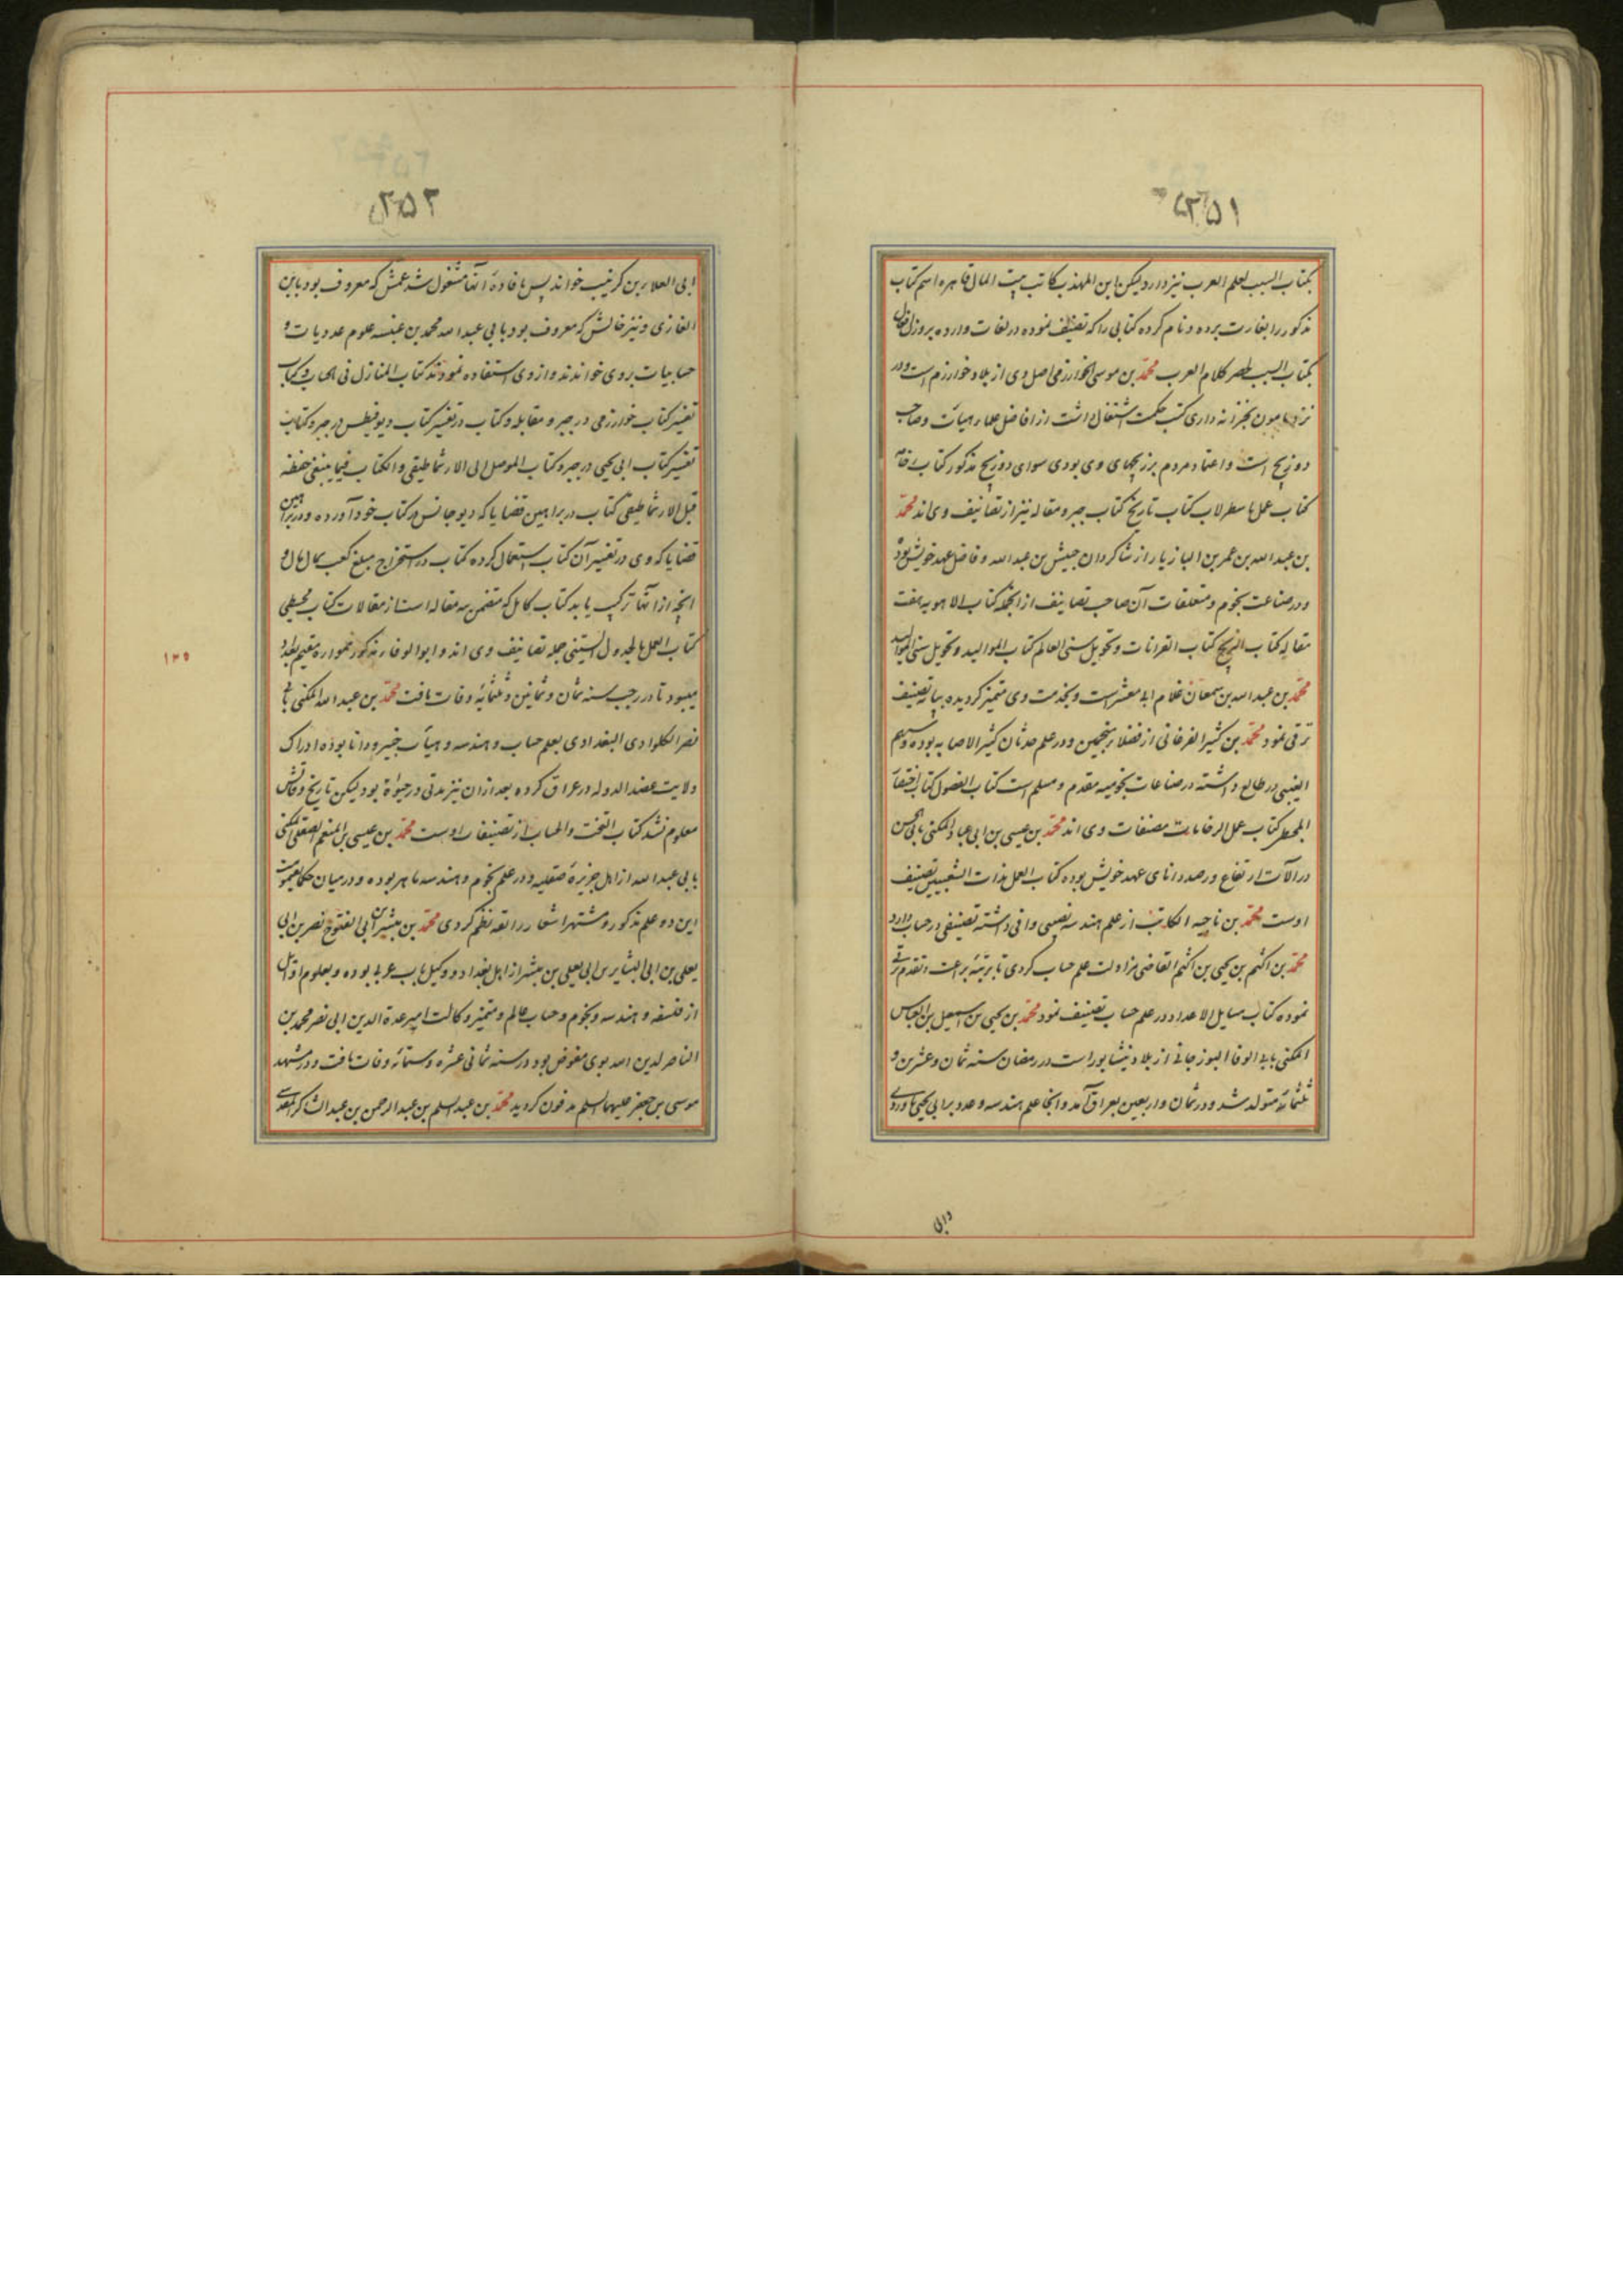 ۲۵۱
بکتاب السبب لعلم العرب نیز دارد لیکن ابن المهذب کاتب بیت المال قاهره اسم کتاب
مذکور را بغارت برده و نام کرده کتابی را که تصنیف نموده در لغات وارده بروزن افعال
بکتاب السبب لحصر کلام العرب محمد بن موسی الخوارزمی اصل وی از بلاد خوارزم است و در
نزد مامون بخزانه داری کتب حکمت اشتغال داشت از افاضل علماء هیأت و صاحب
دو زیج است و اعتماد مردم بر زیجهای وی بودی سوای دو زیج مذکور کتاب رخامه
کتاب عمل باسطرلاب کتاب تاریخ کتاب جبر و مقابله نیز از تصانیف وی‌اند محمد
بن عبدالله بن عمر بن البازیار از شاکردان حبیش بن عبدالله و فاضل عهد خویش بود
و در صناعت نجوم و متعلقات آن صاحب تصانیف از انجمله کتاب الاهویه هفت
مقاله کتاب الزیج کتاب القرانات و تحویل سنی العالم کتاب الموالید و تحویل سنی الموالید
محمد بن عبدالله بن سمعان غلام ابی معشر است و بخدمت وی متمیز کردیده بپایه تصنیف
ترقی نمود محمد بن کثیر الفرغانی از فضلاء منجمین و در علم حدثان کثیر الاصابه بوده و سهم
الغیبی در طالع داشته در صناعات نجومیه مقدم و مسلم است کتاب الفصول کتاب اختصار
المجسطی کتاب عمل الرخامات مصنفات وی‌اند محمد بن عیسی بن ابی عباد المکنی بابی الحسن
در آلات ارتفاع و رصد دانای عهد خویش بوده کتاب العمل بذات الشعبتین تصنیف
اوست محمد بن ناجیه الکاتب از علم هندسه نصیبی وافی داشته تصنیفی در حساب دارد
محمد بن اکثم بن یحیی بن اکثم القاضی مزاولت علم حساب کردی تا برتبه براعت و تقدم ترقی
نموده کتاب مسایل الاعداد در علم حساب تصنیف نمود محمد بن یحیی بن اسمعیل بن العباس
المکنی بابی الوفا البوزجانی از بلاد نیشابور است در رمضان سنه ثمان و عشرین و
ثلثمائه متولد شد و در ثمان و اربعین بعراق آمد و انجا علم هندسه و عدد بر ابی یحیی باوردی
و ابی
۲۵۲
ابی العلاء بن کرنیب خواند پس بافاده آنها مشغول شد عمش که معروف بود باین
المغازی و نیز خالش که معروف بود بابی عبدالله محمد بن عنبسه علوم عددیات و
حسابیات بروی خواندند و از وی استفاده نمودند کتاب المنازل فی الحساب و کتاب
تفسیر کتاب خوارزمی در جبر و مقابله و کتاب در تفسیر کتاب دیوفنطس در جبر و کتاب
تفسیر کتاب ابی یحیی در جبر و کتاب الموصل الی الارثماطیقی و الکتاب فیما ینبغی حفظه
قبل الارثماطیقی کتاب در براهین قضایا که دیوجانس در کتاب خود آورده و در براهین
قضایا که وی در تفسیر آن کتاب استعمال کرده کتاب در استخراج مبلغ کعب بمال مال و
انچه از انها ترکیب یابد کتاب کامل که متضمن سه مقاله است از مقالات کتاب مجسطی
کتاب العمل بالجدول الستینی جمله تصانیف وی‌اند و ابوالوفاء مذکور همواره مقیم بغداد
میبود تا در رجب سنه ثمان و ثمانین و ثلثمائه وفات یافت محمد بن عبدالله المکنی بابی
نصر الکلوادی البغدادی بعلم حساب و هندسه و هیأت خبیر و دانا بوده ادراک
ولایت عضد الدوله در عراق کرده بعد ازان نیز مدتی در حیوة بود لیکن تاریخ وفاتش
معلوم نشد کتاب التخت و الحساب از تصنیفات اوست محمد بن عیسی بن المنعم الصقلی المکنی
بابی عبدالله از اهل جزیره صقلیه و در علم نجوم و هندسه ماهر بوده و در میان حکما بعموت
این دو علم مذکور و مشتهر اشعار رائقه نظم کردی محمد بن مبشر بن ابی الفتوح نصر بن ابی
یعلی بن ابی البشایر بن ابی یعلی بن مبشر از اهل بغداد و وکیل باب غربی بوده و بعلوم اوایل
از فلسفه و هندسه و نجوم و حساب عالم و متمیز وکالت امیر عدة الدین ابی نصر محمد بن
الناصر لدین الله بوی مفوض بود در سنه ثمانی عشره و ستمائه وفات یافت و در مشهد
موسی بن جعفر علیهما السلم مدفون کردید محمد بن عبد السلم بن عبدالرحمن بن عبدالشاکر المقدسی
۱۳۵